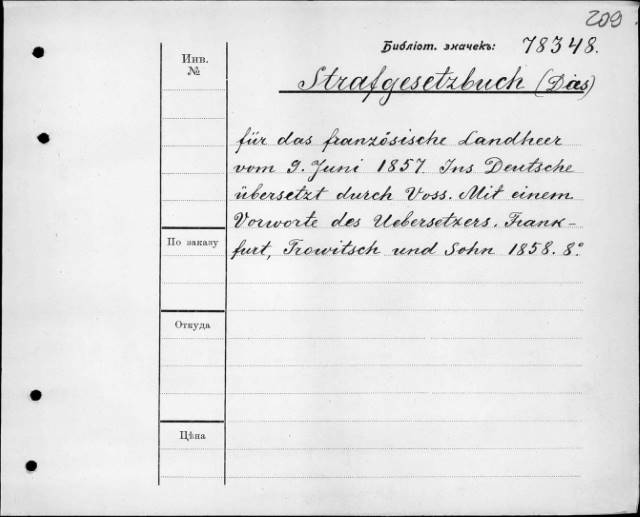 209
Библіот. значекъ: 78348.
Инв.
№
Strafgesetzbuch (Das)
für das französische Landheer
vom 9. Juni 1857. Ins Deutsche
übersetzt durch Voss. Mit einem
Vorworte des Uebersetzers. Frank-
furt, Trowitsch und Sohn 1858. 8°.
По заказу
Откуда
Цѣна